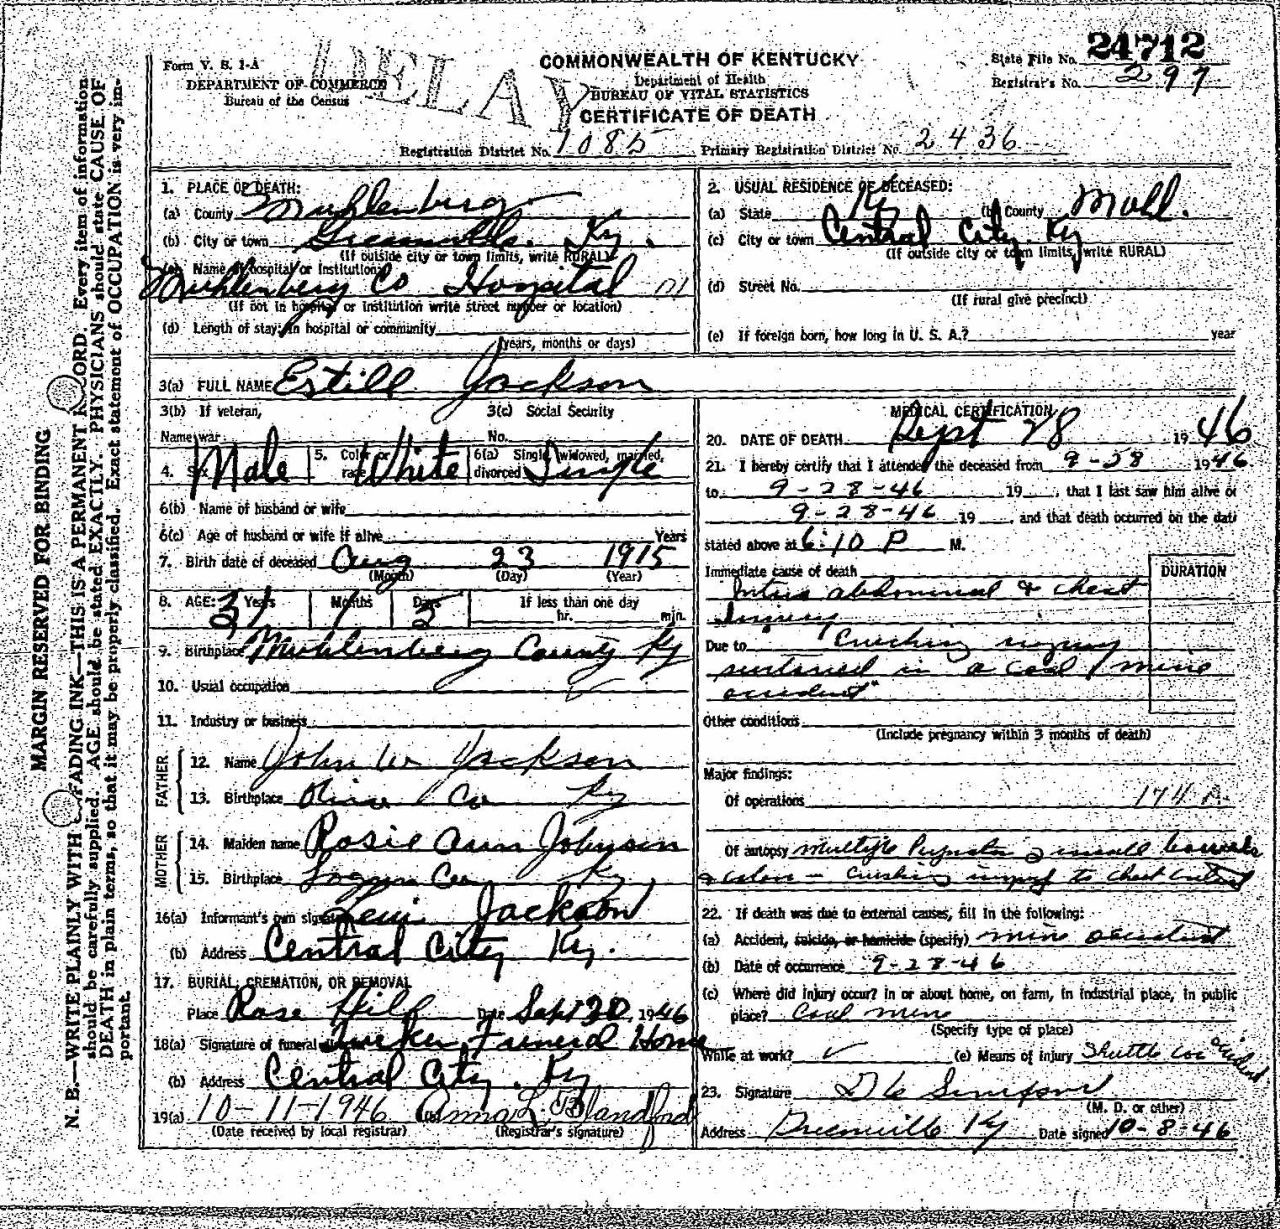 24712
Form V. S. 1-A
DELAY
COMMONWEALTH OF KENTUCKY
State File No.
DEPARTMENT OF COMMERCE
Department of Health
Registrar's No. 297
Bureau of the Census
BUREAU OF VITAL STATISTICS
CERTIFICATE OF DEATH
Registration District No. 1085 Primary Registration District No. 2436
1. PLACE OF DEATH:
(a) County Muhlenberg
(b) City or town Greenville. Ky.
(If outside city or town limits, write RURAL)
(c) Name of hospital or institution:
Muhlenberg Co Hospital
(If not in hospital or institution write street number or location)
(d) Length of stay: in hospital or community
(years, months or days)
2. USUAL RESIDENCE OF DECEASED:
(a) State Ky (b) County Muhl.
(c) City or town Central City. Ky
(If outside city or town limits, write RURAL)
(d) Street No.
(If rural give precinct)
(e) If foreign born, how long in U. S. A.? year
3(a) FULL NAME Estill Jackson
3(b) If veteran,
3(c) Social Security
Name war
No.
4. Sex Male 5. Color or race White 6(a) Single, widowed, married, divorced Single
6(b) Name of husband or wife
6(c) Age of husband or wife if alive Years
7. Birth date of deceased Aug 23 1915
(Month) (Day) (Year)
8. AGE: 31 Years 1 Months 5 Days If less than one day
hr. min.
9. Birthplace Muhlenberg County Ky
10. Usual occupation
11. Industry or business
FATHER
12. Name John W Jackson
13. Birthplace Co Ky
MOTHER
14. Maiden name Rosie Ann Johnson
15. Birthplace Logan Co Ky
16(a) Informant's own signature Jackson
(b) Address Central City Ky.
17. BURIAL, CREMATION, OR REMOVAL
Place Rose Hill Date Sept 30, 1946
18(a) Signature of funeral director Tucker Funeral Home
(b) Address Central City. Ky
19(a) 10-11-1946 (b) Anna L Blandford
(Date received by local registrar) (Registrar's signature)
MEDICAL CERTIFICATION
20. DATE OF DEATH Sept 28 1946
21. I hereby certify that I attended the deceased from 9-28 1946
to 9-28-46 19 , that I last saw him alive on
9-28-46 19 , and that death occurred on the date
stated above at 6:10 P M.
Immediate cause of death
DURATION
abdominal & chest
injury
Due to Crushing injury
sustained in a coal mine
accident
Other conditions
(Include pregnancy within 3 months of death)
Major findings:
Of operations 174 A.
Of autopsy Multiple small bowels
& colon - Crushing injury to chest
22. If death was due to external causes, fill in the following:
(a) Accident, suicide, or homicide (specify) mine accident
(b) Date of occurrence 9-28-46
(c) Where did injury occur? in or about home, on farm, in industrial place, in public
place? Coal mine
(Specify type of place)
While at work? ✓ (e) Means of injury Shuttle car accident
23. Signature Simpson
(M. D. or other)
Address Greenville Ky Date signed 10-8-46
MARGIN RESERVED FOR BINDING
N. B.—WRITE PLAINLY WITH UNFADING INK—THIS IS A PERMANENT RECORD. Every item of information
should be carefully supplied. AGE should be stated EXACTLY. PHYSICIANS should state CAUSE OF
DEATH in plain terms, so that it may be properly classified. Exact statement of OCCUPATION is very im-
portant.